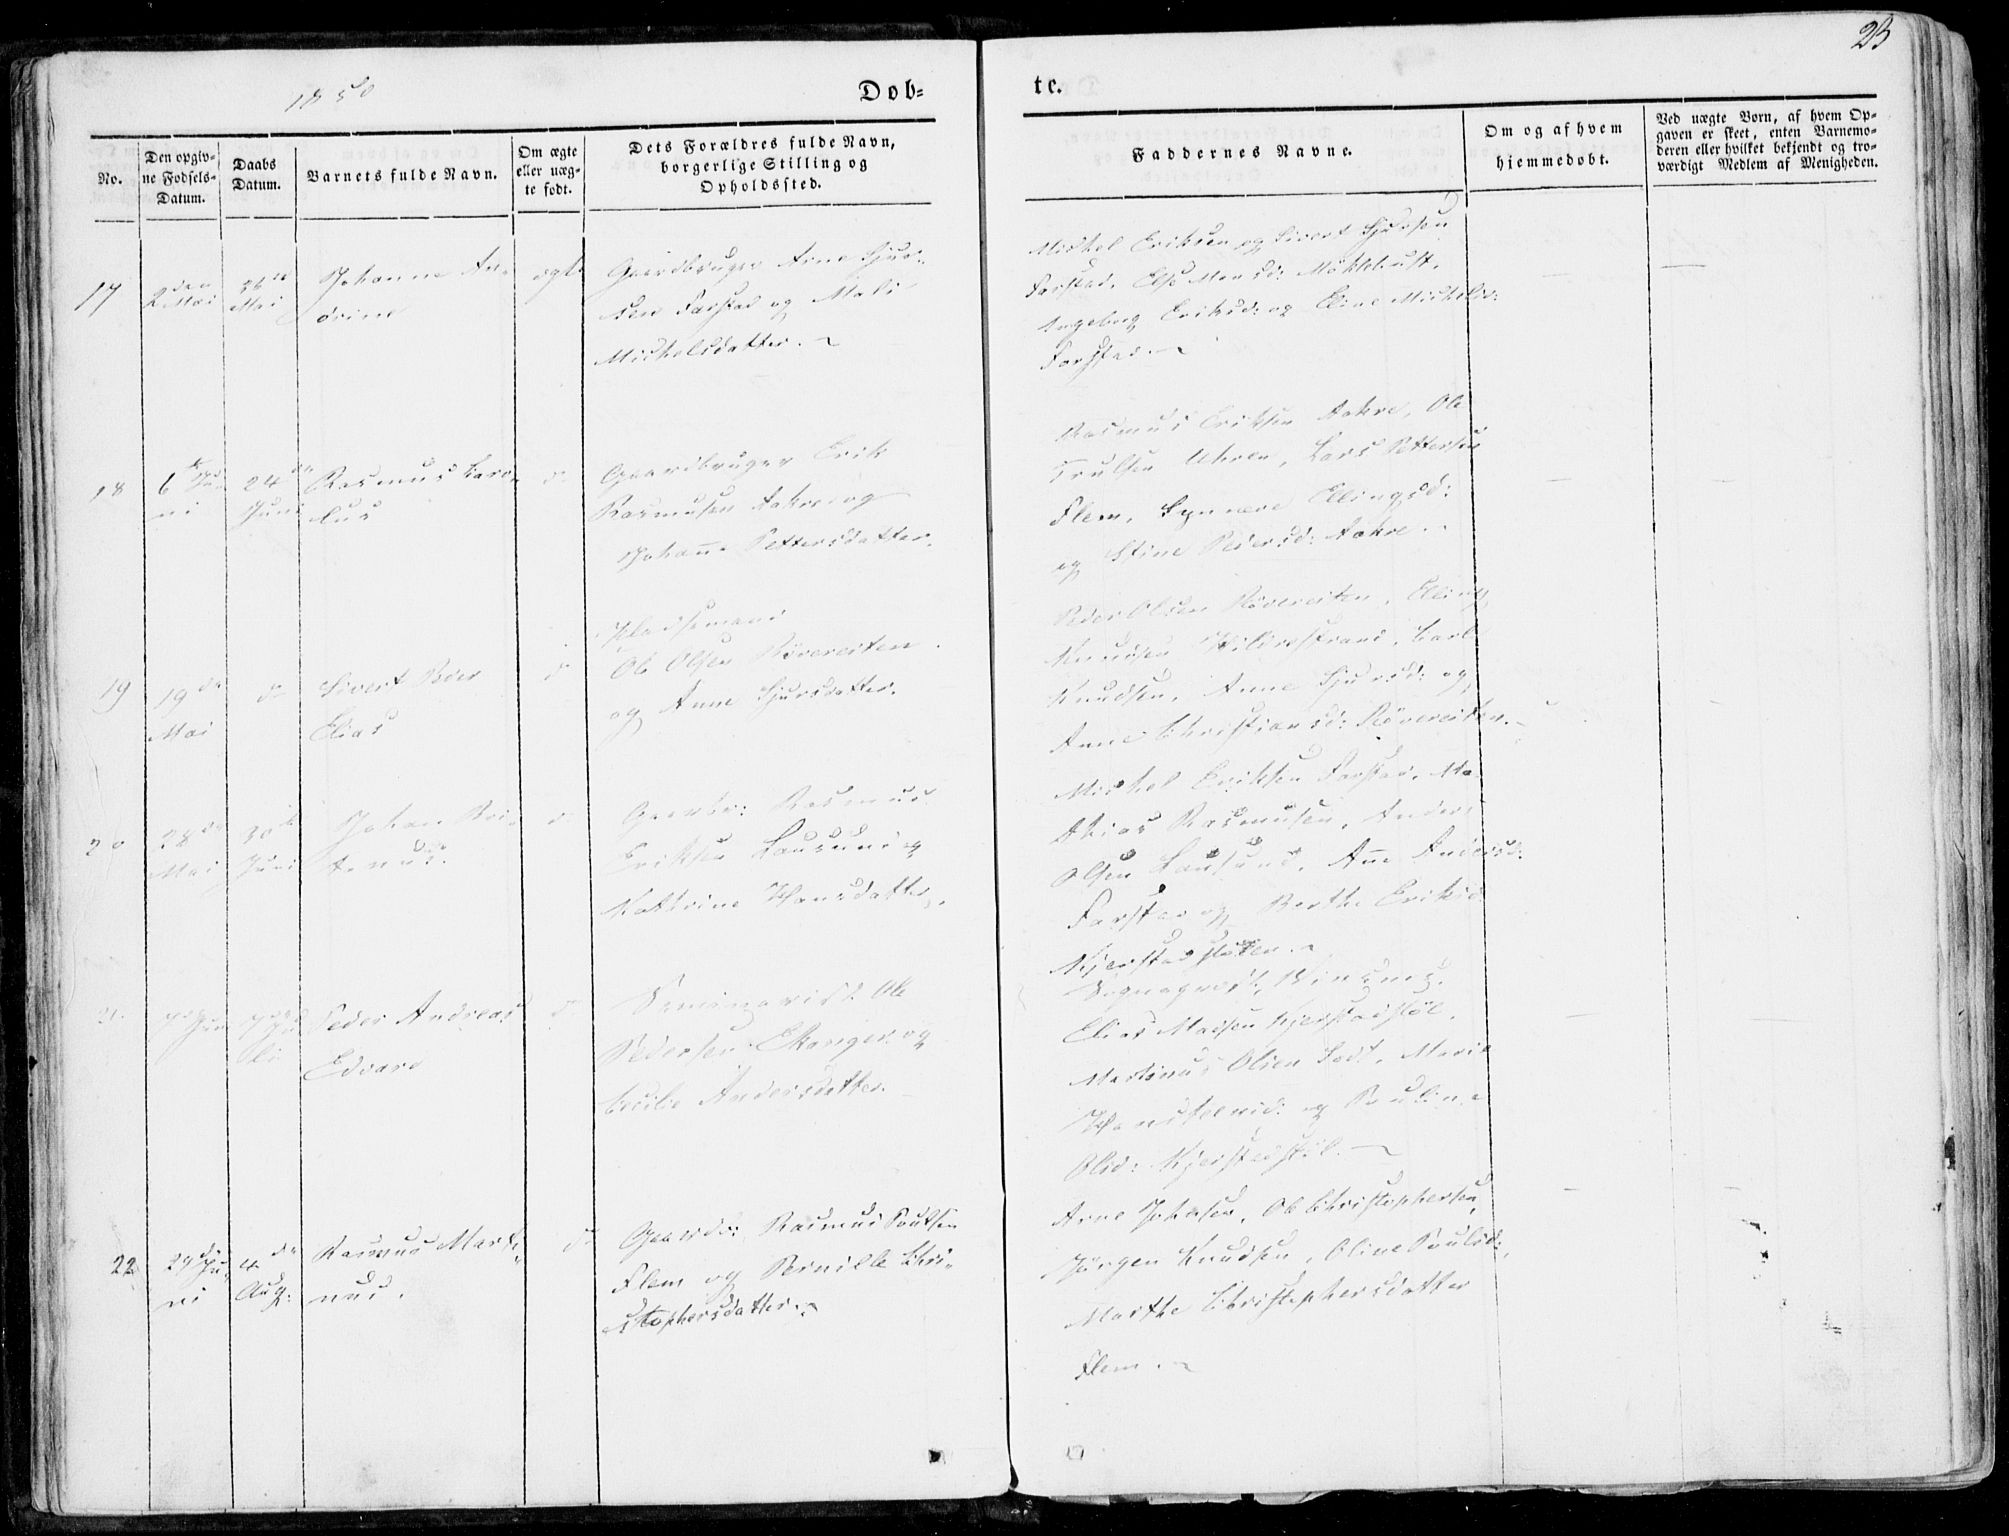 23
1850
Dob-
te.
No.
Den opgiv-
ne Fodsels-
Datum.
Daabs
Datum.
Barnets fulde Navn.
Om ægte
eller uæg-
te født.
Dets Forældres fulde Navn,
borgerlige Stilling og
Opholdssted.
Faddernes Navne.
Om og af hvem
hjemmedobt.
Ved uægte Born, af hvem Op-
gaven er skeet, enten Barnemo-
deren eller hvilket bekjendt og tro-
værdigt Medlem af Menigheden.
17
2den
Mai
26de
Mai
Johanne An-
drine
ægte
Gaardbruger Arne Sjur-
sen Farstad og Mali
Michelsdatter.
Michel Eriksen og Sivert Sjursen
Farstad, Else Monsd: Möklebust,
Ingeborg Eriksd: og Eline Michelsd:
Farstad.
18
6te Ju-
ni
24de
Juni
Rasmus Karo-
lus
do
Gaardbruger Erik
Rasmusen Aakre og
Johanne Pettersdatter.
Rasmus Eriksen Aakre, Ole
Trulsen Uhren, Lars Pettersen
Flem, Synneve Ellingsd:
og Stine Pedersd: Aakre.
19
19de
Mai
do
Sivert Peder
Elias
do
Pladsemand
Ole Olsen Rövereiten
og Anne Sjursdatter.
Peder Olsen Rövereiten, Elling
Knudsen Hildrestrand, Carl
Knudsen, Anne Sjursd: og
Anne Christiansd: Rövereiten.
20
28de
Mai
30te
Juni
Johan
do
Gaardbr: Rasmus
Eriksen Lausund og
Kathrine Hansdatter.
Michel Eriksen Farstad, Ma-
thias Rasmusen, Anders
Olsen Lausund, Ane Andersd:
Farstad og Berthe Eriksd:
Kjerstadstölen.
21
7de Ju-
li
Peder Andreas
Edvard
do
Seminarist Ole
Pedersen Ekanger og
Cecilie Andersdatter.
Sogneprest
Elias Madsen Kjerstadstöl,
Martinus Olsen Sadt, Marie
og Pauline
Olsd: Kjerstadstöl.
22
29de Ju-
ni
4de
Aug:
Rasmus Marti-
nus.
do
Gaardb: Rasmus Poulsen
Flem og Pernille Chri-
stophersdatter.
Arne Johnsen, Ole Christophersen,
Jörgen Knudsen, Oline Poulsd:,
Marthe Christophersdatter
Flem.